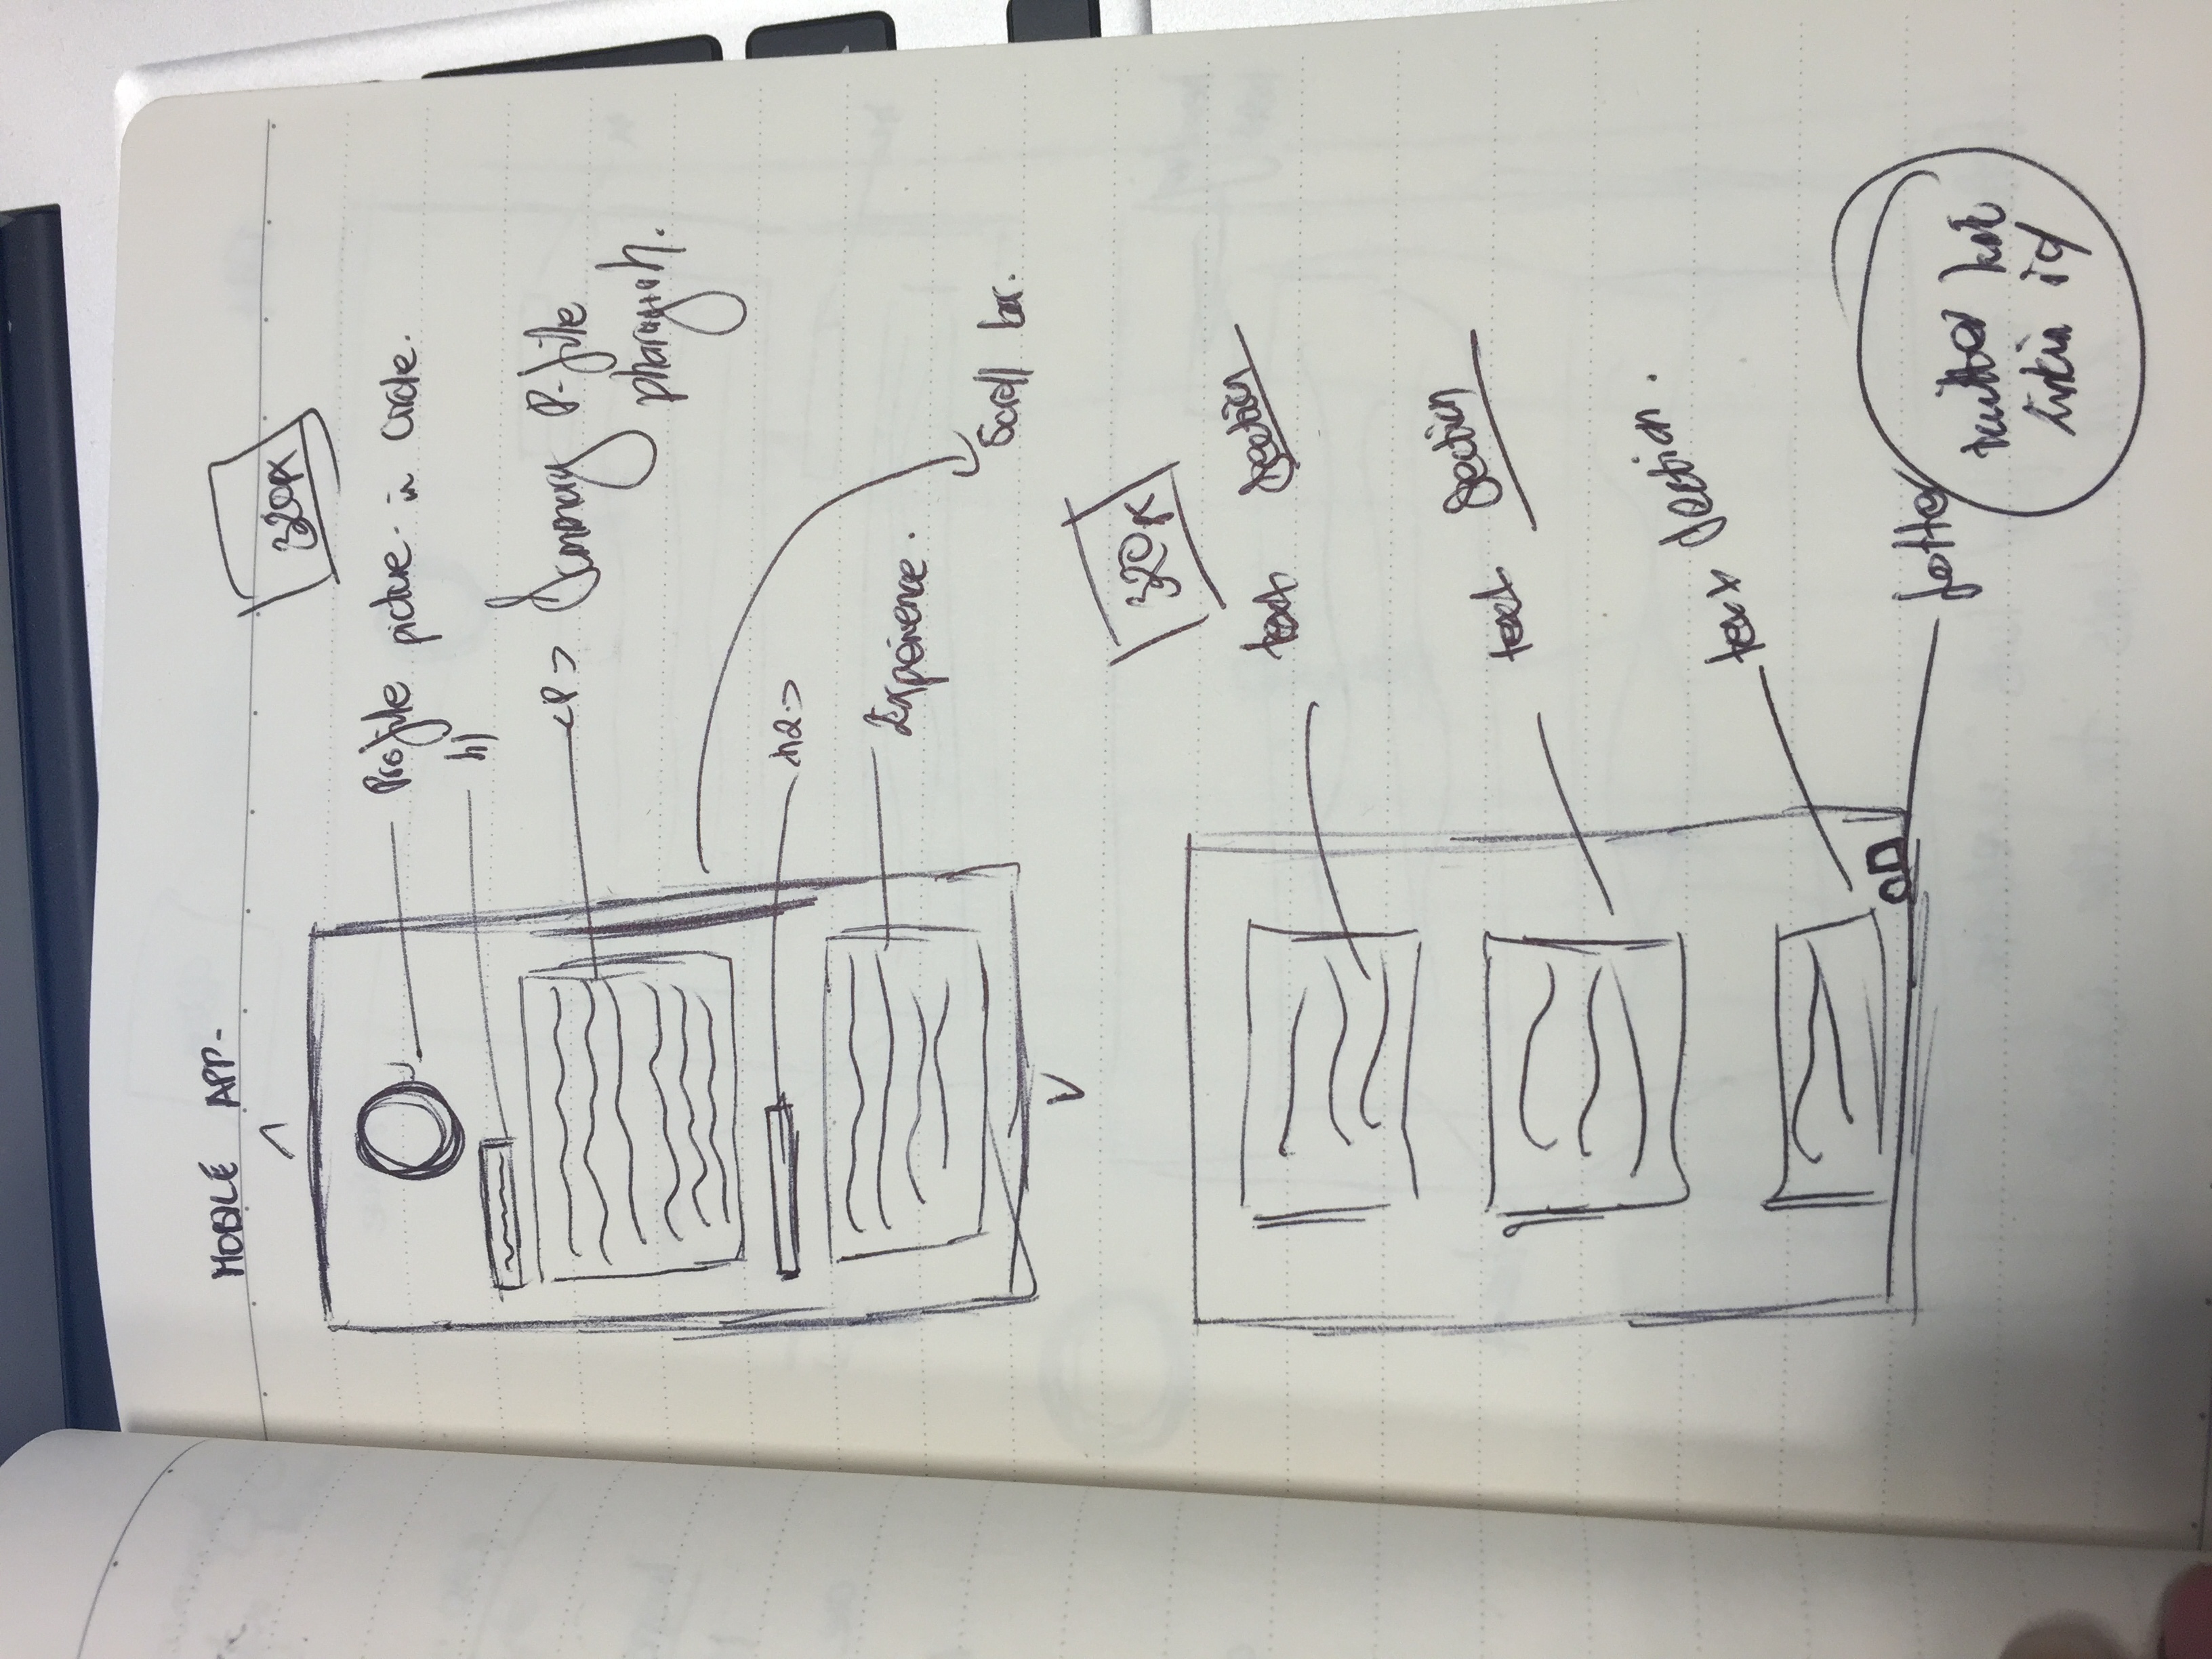 MOBILE APP-
320px
Profile picture in circle.
h1
<P> Summary P-file
pharagrah.
<h2>
Experience.
Scroll bar.
320px
text Section
text Section
text Section.
fotter
twitter
id